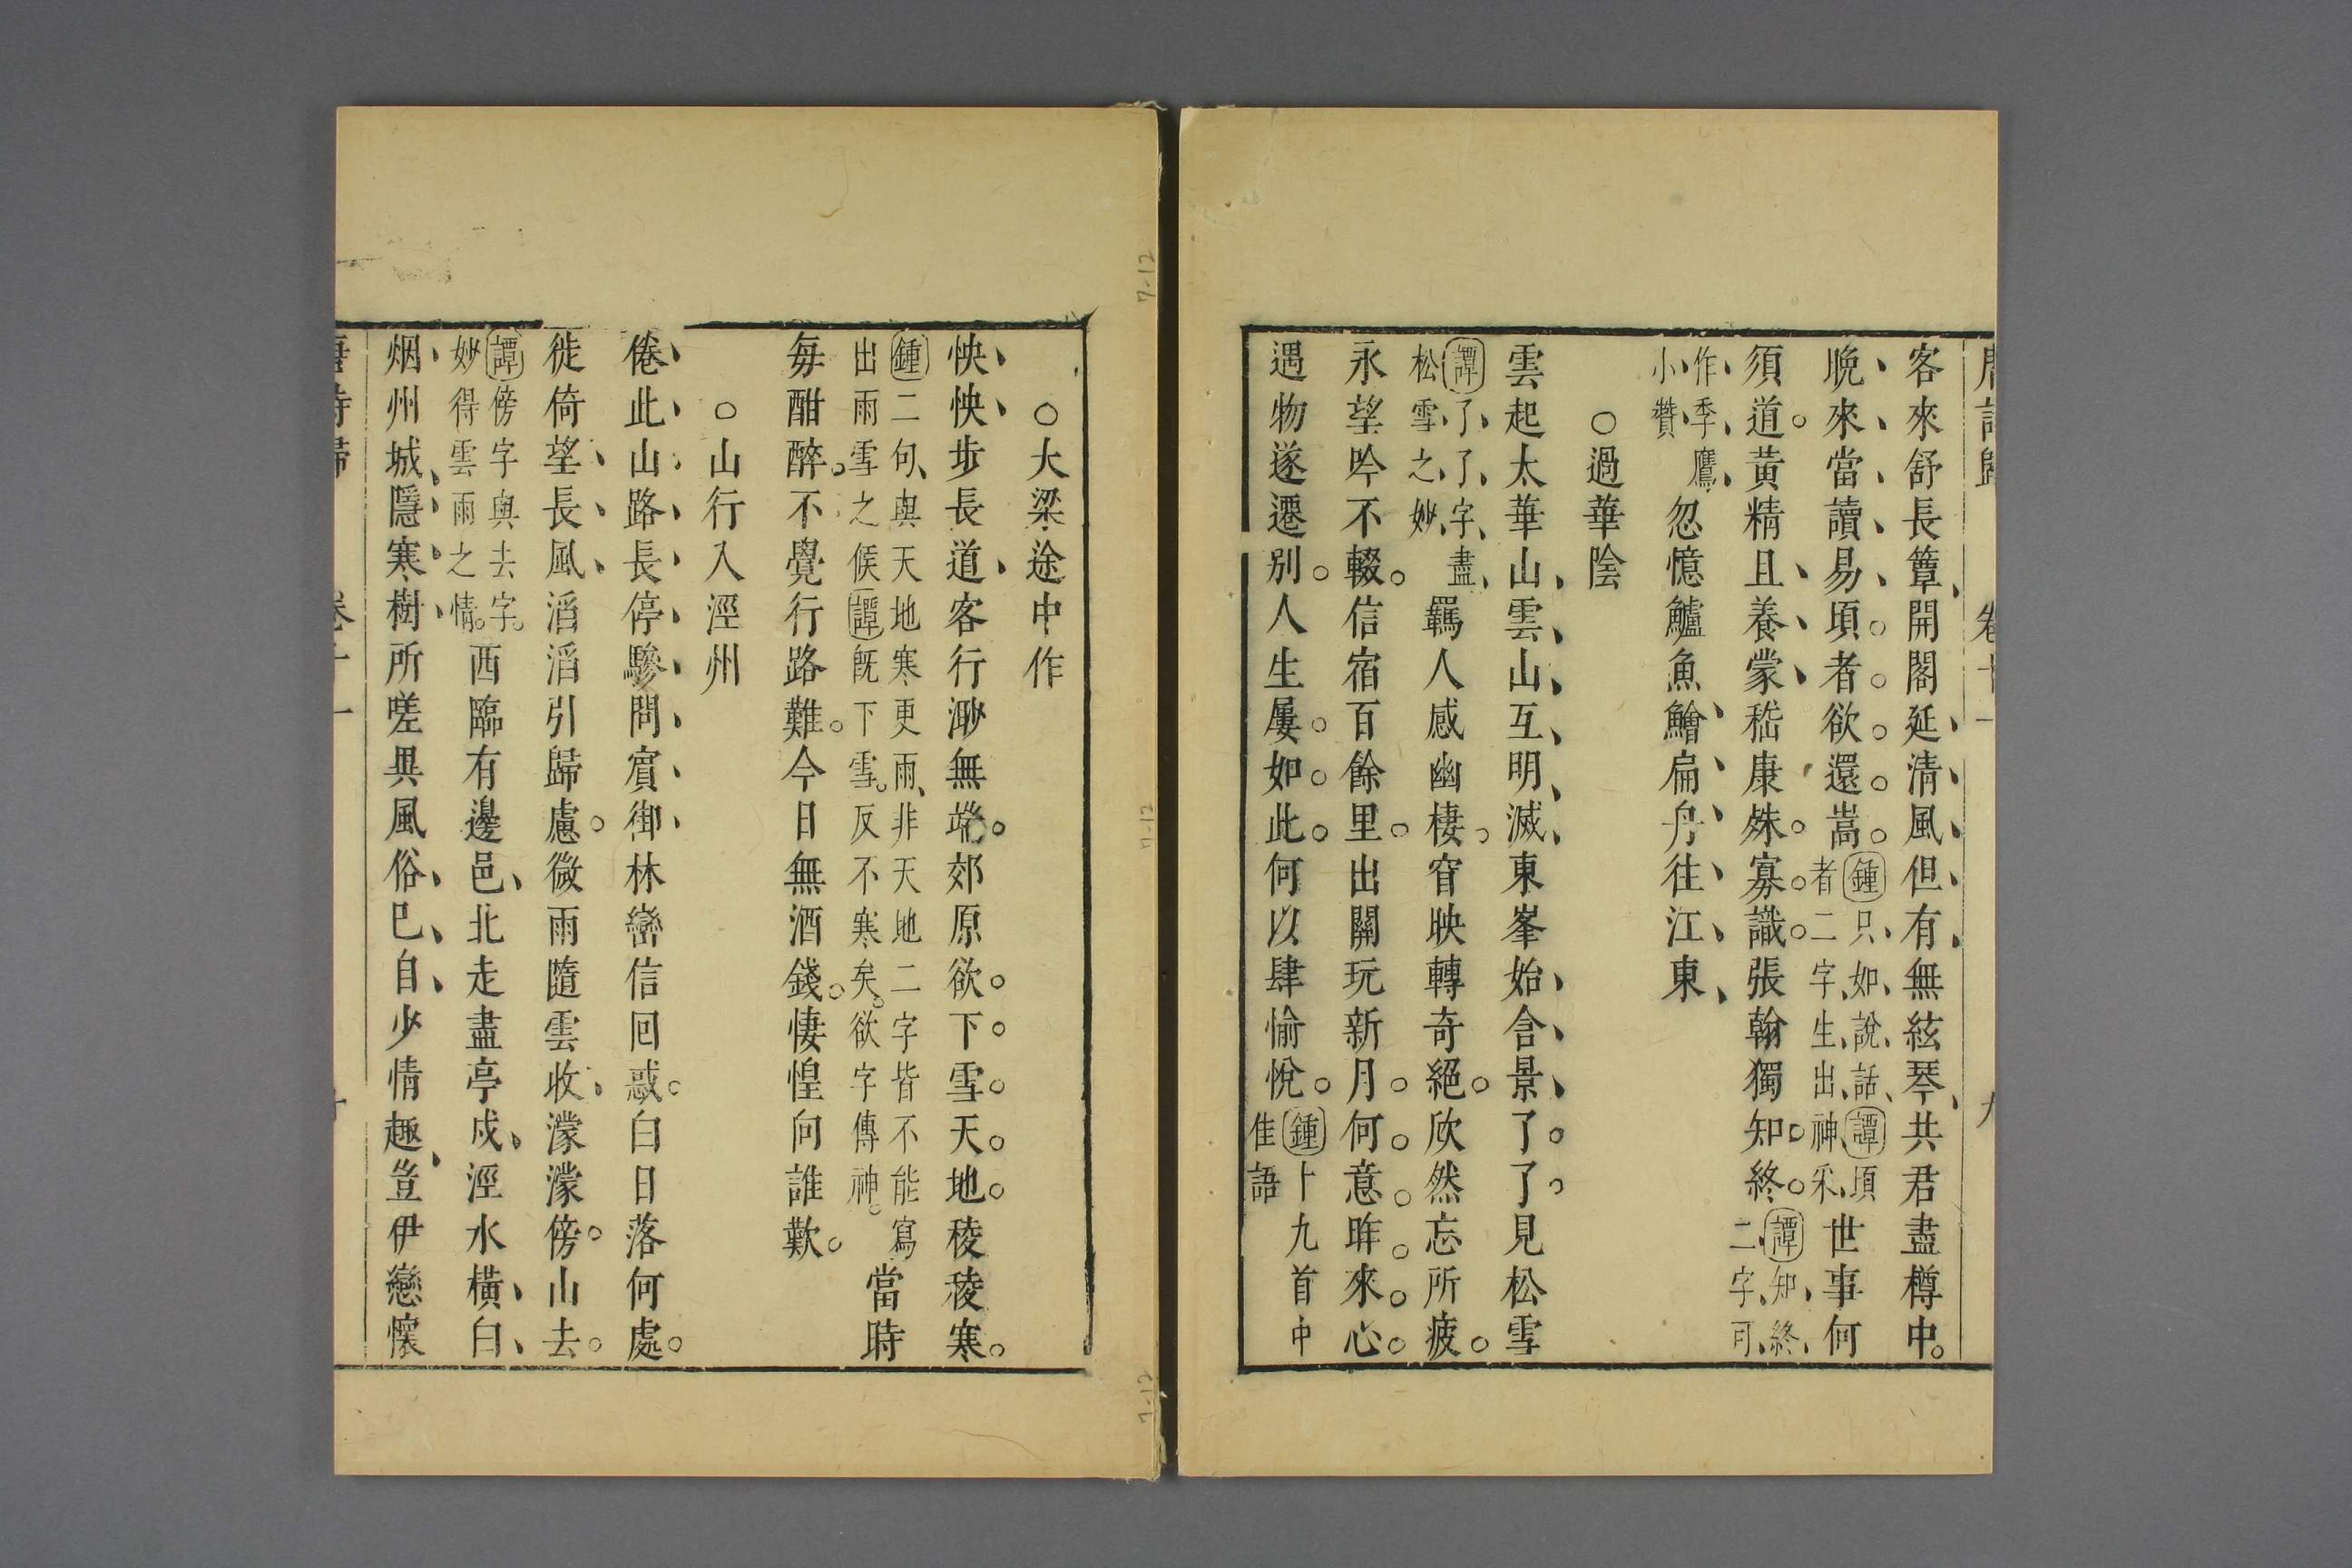 唐詩歸 卷十一 九
客來舒長簟開閣延清風但有無絃琴共君盡樽中
晚來當讀易頃者欲還嵩鍾只如說話譚頃者二字生出神采世事何
須道黃精且養蒙嵇康殊寡識張翰獨知終譚知終二字可
作季鷹小贊忽憶鱸魚鱠扁舟往江東
○過華陰
雲起太華山雲山互明滅東峯始含景了了見松雪
譚了了字盡松雪之妙羈人感幽棲窅映轉奇絕欣然忘所疲
永望吟不輟信宿百餘里出關玩新月何意昨來心
遇物遂遷别人生屢如此何以肆愉悅鍾十九首中佳語
○大梁途中作
怏怏步長道客行渺無端郊原欲下雪天地稜稜寒
鍾二句與天地寒更雨非天地二字皆不能寫出雨雪之候譚旣下雪反不寒矣欲字傳神當時
每酣醉不覺行路難今日無酒錢悽惶向誰歎
○山行入涇州
倦此山路長停驂問賔御林巒信回惑白日落何處
徙倚望長風滔滔引歸慮微雨隨雲收濛濛傍山去
譚傍字與去字妙得雲雨之情西臨有邊邑北走盡亭戍涇水橫白
烟州城隱寒樹所嗟異風俗已自少情趣豈伊戀懷
唐詩歸 卷十一 十